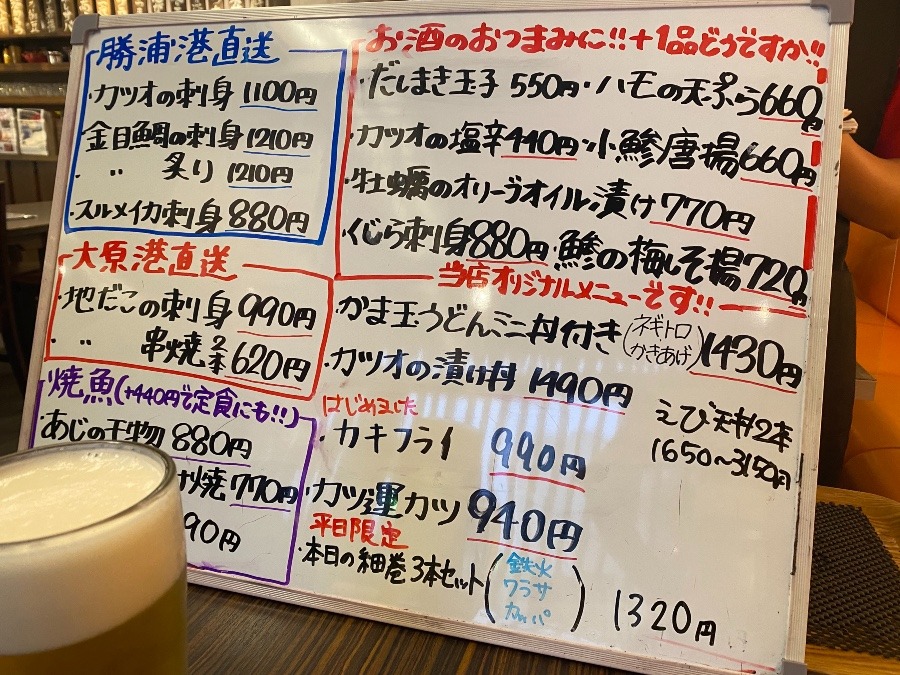 勝浦港直送
・カツオの刺身 1100円
・金目鯛の刺身 1210円
・ 〃 炙り 1210円
・スルメイカ刺身 880円
大原港直送
・地だこの刺身 990円
・ 〃 串焼2本 620円
焼魚(+440円で定食にも!!)
・あじの干物 880円
焼 770円
90円
お酒のおつまみに!!+1品どうですか!!
・だしまき玉子 550円・ハモの天ぷら 660円
・カツオの塩辛 440円・小鯵唐揚 660円
・牡蠣のオリーブオイル漬け 770円
・くじら刺身 880円・鯵の梅しそ揚 720円
当店オリジナルメニューです!!
・かま玉うどんミニ丼付き(ネギトロ かきあげ) 1430円
・カツオの漬け丼 1490円
えび天丼2本
1650~3150円
はじめました
・カキフライ 990円
・カツ運カツ 940円
平日限定
・本日の細巻3本セット(鉄火 ワラサ カッパ) 1320円